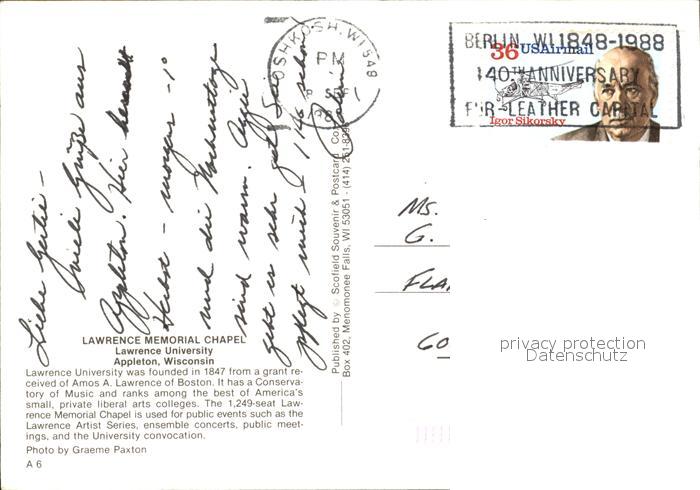 Liebe Gertie -
Viele Grüße aus
Appleton. Hier
Herbst - morgens -1°
und die Nachmittage
sind warm.
geht es sehr gut. Sie
pflegt mich
OSHKOSH, WI 549
PM
BERLIN, WI 1848-1988
140TH ANNIVERSARY
FUR-LEATHER CAPITAL
36 USAirmail
Igor Sikorsky
Published by © Scofield Souvenir & Postcard Co.
Box 402, Menomonee Falls, WI 53051 - (414) 251-829
Ms.
G.
FLA
60
privacy protection
Datenschutz
LAWRENCE MEMORIAL CHAPEL
Lawrence University
Appleton, Wisconsin
Lawrence University was founded in 1847 from a grant re-
ceived of Amos A. Lawrence of Boston. It has a Conserva-
tory of Music and ranks among the best of America's
small, private liberal arts colleges. The 1,249-seat Law-
rence Memorial Chapel is used for public events such as the
Lawrence Artist Series, ensemble concerts, public meet-
ings, and the University convocation.
Photo by Graeme Paxton
A 6